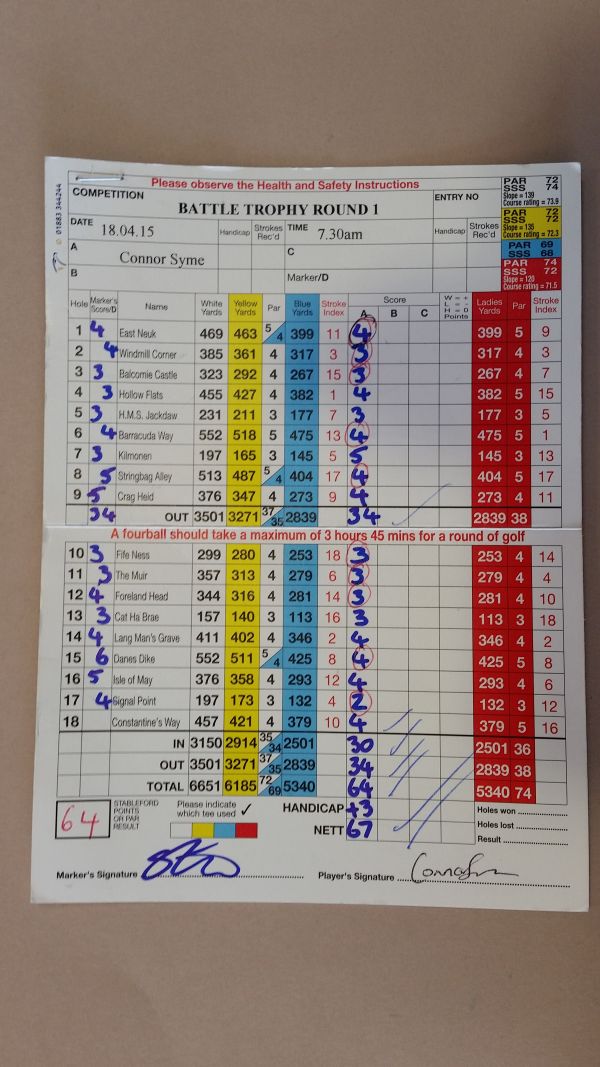 Please observe the Health and Safety Instructions
01883 344244
COMPETITION BATTLE TROPHY ROUND 1 ENTRY NO
PAR 72
SSS 74
Slope = 139
Course rating = 73.9
PAR 72
SSS 72
Slope = 135
Course rating = 72.3
PAR 69
SSS 68
PAR 74
SSS 72
Slope = 120
Course rating = 71.5
DATE 18.04.15 Handicap Strokes Rec'd TIME 7.30am Handicap Strokes Rec'd
A Connor Syme C
B Marker/D
Hole Marker's Score/D Name White Yards Yellow Yards Par Blue Yards Stroke Index Score A B C W = + L = - H = 0 Points Ladies Yards Par Stroke Index
1 4 East Neuk 469 463 5 4 399 11 4 399 5 9
2 4 Windmill Corner 385 361 4 317 3 3 317 4 3
3 3 Balcomie Castle 323 292 4 267 15 3 267 4 7
4 3 Hollow Flats 455 427 4 382 1 4 382 5 15
5 3 H.M.S. Jackdaw 231 211 3 177 7 3 177 3 5
6 4 Barracuda Way 552 518 5 475 13 4 475 5 1
7 3 Kilmonen 197 165 3 145 5 5 145 3 13
8 5 Stringbag Alley 513 487 5 4 404 17 4 404 5 17
9 5 Crag Heid 376 347 4 273 9 4 273 4 11
34 OUT 3501 3271 37 35 2839 34 2839 38
A fourball should take a maximum of 3 hours 45 mins for a round of golf
10 3 Fife Ness 299 280 4 253 18 3 253 4 14
11 3 The Muir 357 313 4 279 6 3 279 4 4
12 4 Foreland Head 344 316 4 281 14 3 281 4 10
13 3 Cat Ha Brae 157 140 3 113 16 3 113 3 18
14 4 Lang Man's Grave 411 402 4 346 2 4 346 4 2
15 6 Danes Dike 552 511 5 4 425 8 4 425 5 8
16 5 Isle of May 376 358 4 293 12 4 293 4 6
17 4 Signal Point 197 173 3 132 4 2 132 3 12
18 Constantine's Way 457 421 4 379 10 4 379 5 16
IN 3150 2914 35 34 2501 30 2501 36
OUT 3501 3271 37 35 2839 34 2839 38
TOTAL 6651 6185 72 69 5340 64 5340 74
64 STABLEFORD POINTS OR PAR RESULT Please indicate which tee used ✓ HANDICAP +3 Holes won
NETT 67 Holes lost
Result
Marker's Signature Player's Signature